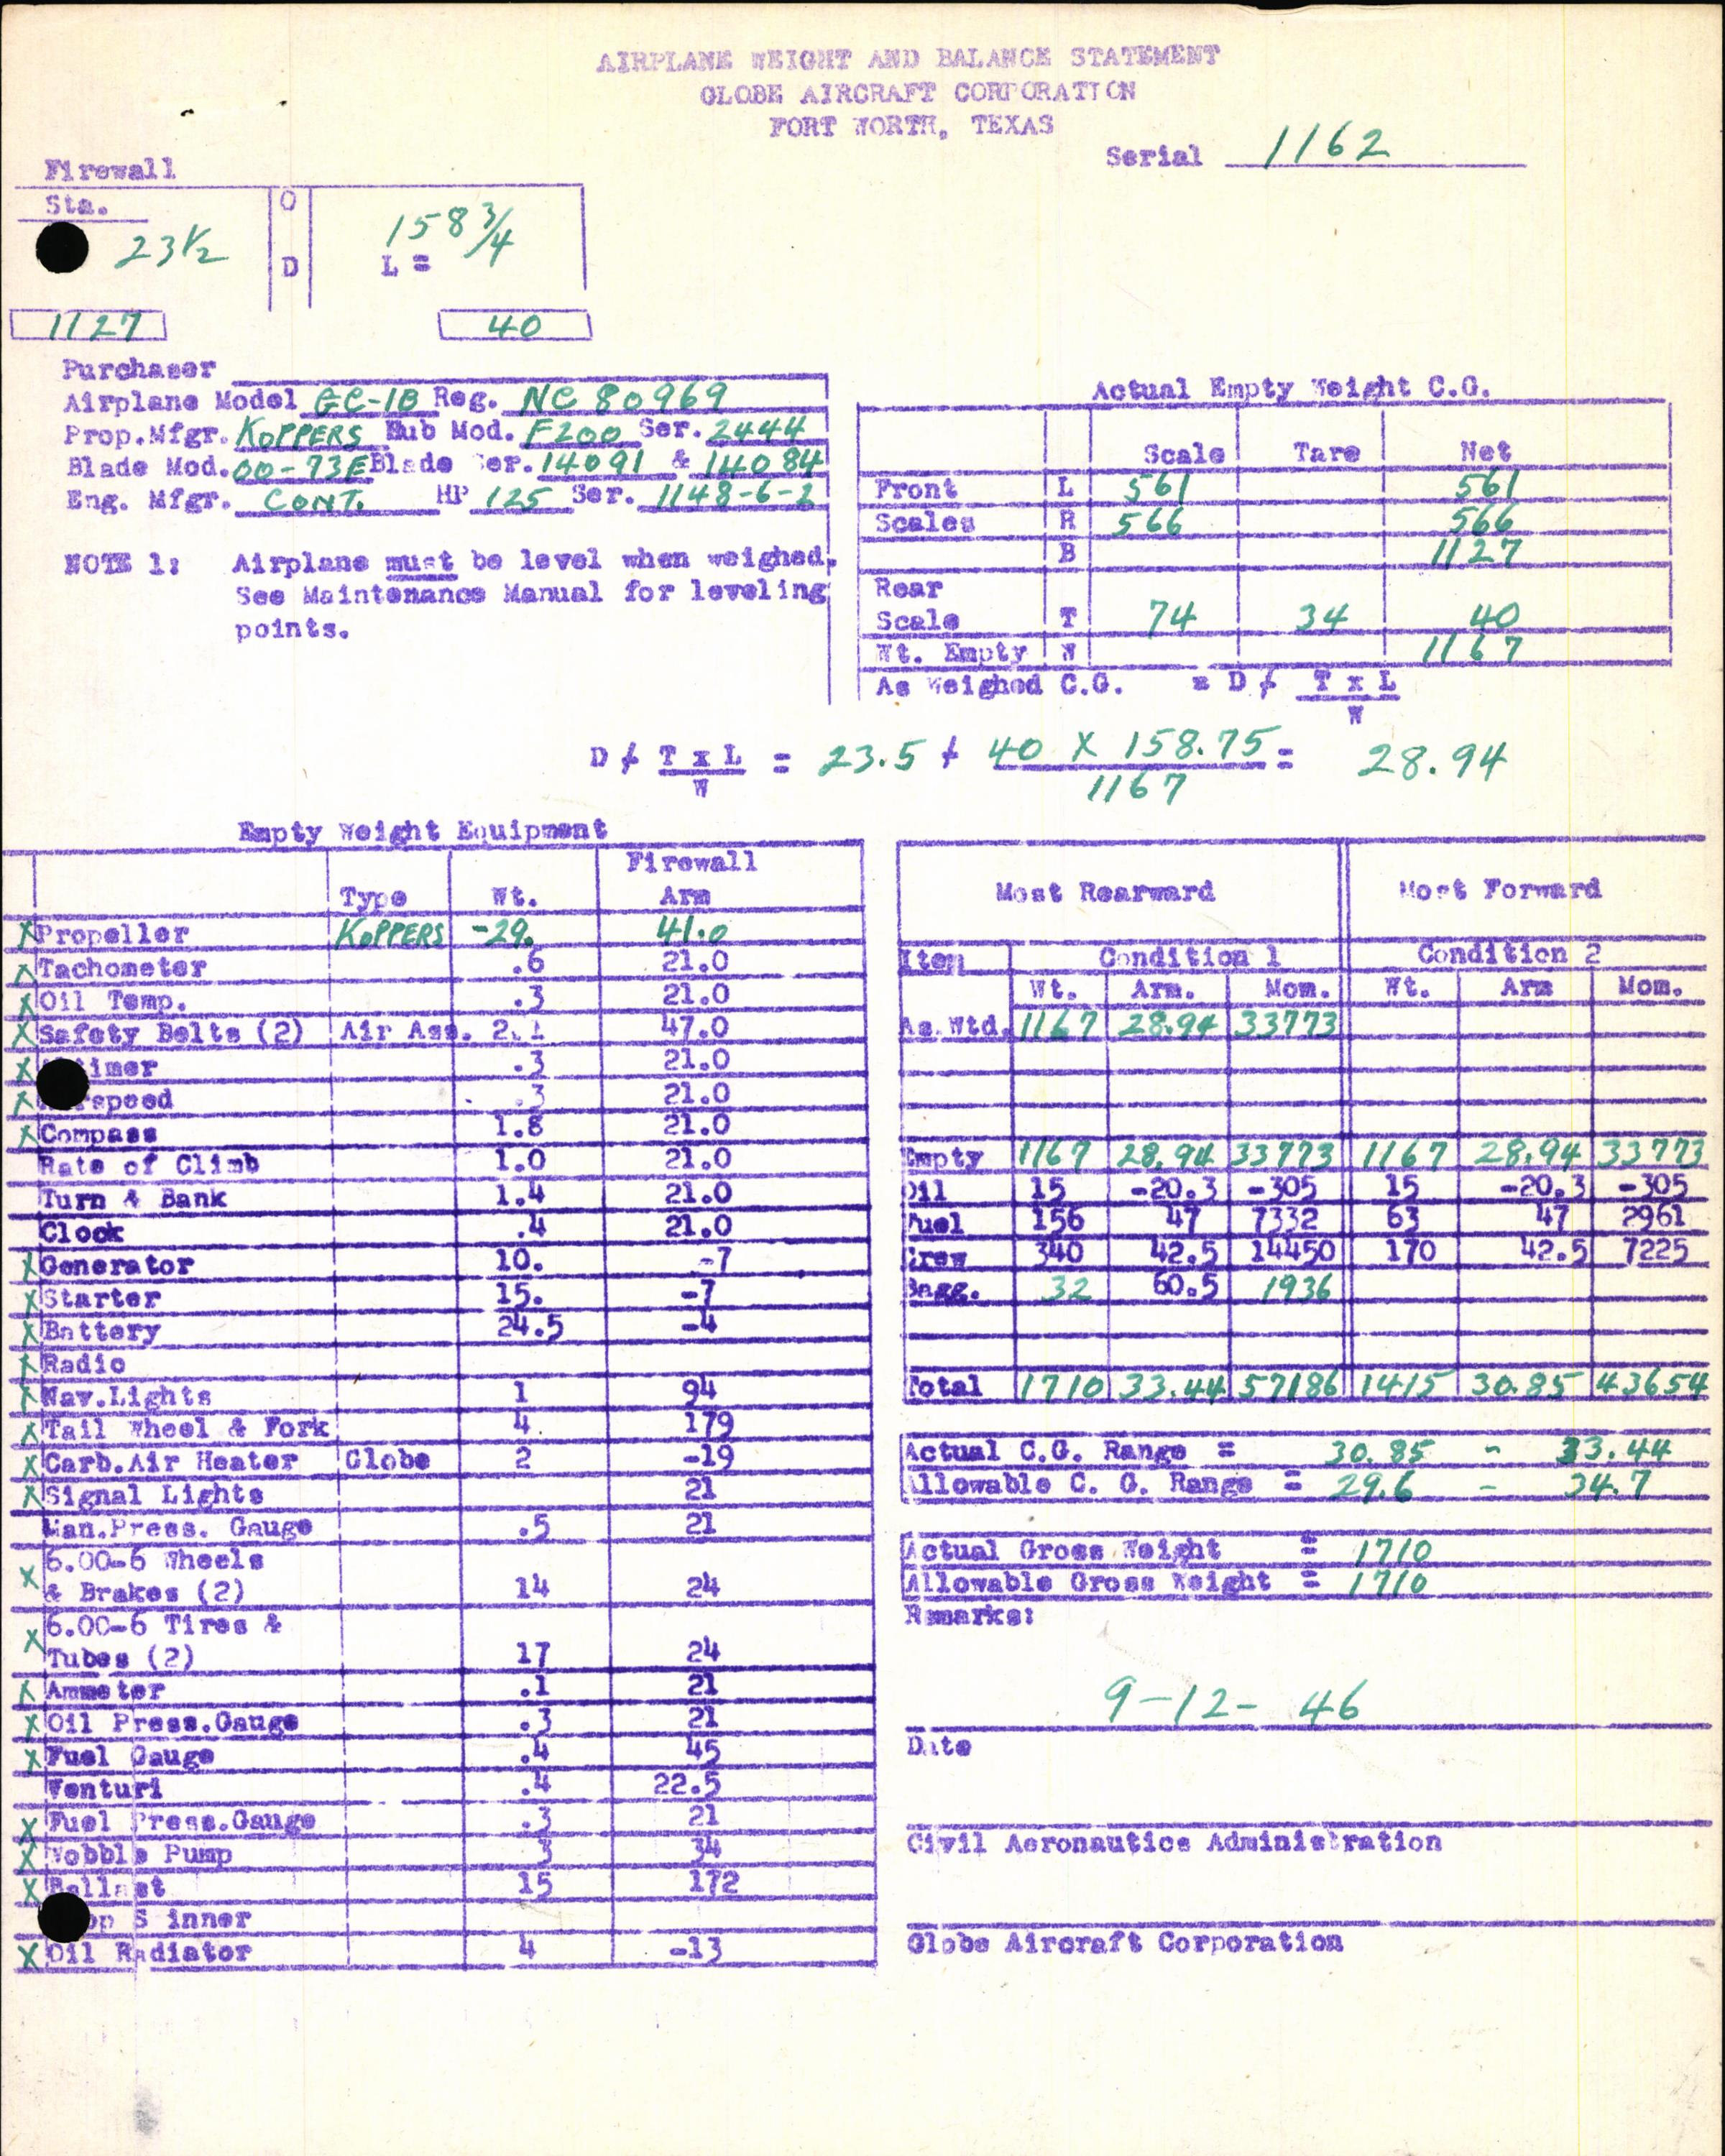 AIRPLANE WEIGHT AND BALANCE STATEMENT
GLOBE AIRCRAFT CORPORATION
FORT WORTH, TEXAS
Serial 1162
Firewall
Sta.
23½
O
D
158 3/4
L =
1127
40
Purchaser
Airplane Model GC-1B Reg. NC 80969
Prop.Mfgr. KOPPERS Hub Mod. F200 Ser. 2444
Blade Mod. 00-73E Blade Ser. 14091 & 14084
Eng. Mfgr. CONT. HP 125 Ser. 1148-6-2
NOTE 1: Airplane must be level when weighed.
See Maintenance Manual for leveling
points.
Actual Empty Weight C.G.
Scale Tare Net
Front L 561 561
Scales R 566 566
B 1127
Rear
Scale T 74 34 40
Wt. Empty W 1167
As Weighed C.G. = D ≠ T x L
W
D ≠ T x L = 23.5 + 40 X 158.75 = 28.94
W 1167
Empty Weight Equipment
Firewall
Type Wt. Arm
X Propeller KOPPERS -29. 41.0
X Tachometer .6 21.0
X Oil Temp. .3 21.0
X Safety Belts (2) Air Ass. 2.1 47.0
X timer .3 21.0
X speed .3 21.0
X Compass 1.8 21.0
Rate of Climb 1.0 21.0
Turn & Bank 1.4 21.0
Clock .4 21.0
X Generator 10. -7
X Starter 15. -7
X Battery 24.5 -4
X Radio
X Nav.Lights 1 94
X Tail Wheel & Fork 4 179
X Carb.Air Heater Globe 2 -19
X Signal Lights 21
Man.Press. Gauge .5 21
X 6.00-6 Wheels
& Brakes (2) 14 24
X 6.00-6 Tires &
Tubes (2) 17 24
X Ammeter .1 21
X Oil Press.Gauge .3 21
X Fuel Gauge .4 45
Venturi .4 22.5
X Fuel Press.Gauge .3 21
X Wobble Pump 3 34
X Ballast 15 172
op S inner
X Oil Radiator 4 -13
Most Rearward Most Forward
Item Condition 1 Condition 2
Wt. Arm. Mom. Wt. Arm Mom.
As Wtd. 1167 28.94 33773
Empty 1167 28.94 33773 1167 28.94 33773
Oil 15 -20.3 -305 15 -20.3 -305
Fuel 156 47 7332 63 47 2961
Crew 340 42.5 14450 170 42.5 7225
Bagg. 32 60.5 1936
Total 1710 33.44 57186 1415 30.85 43654
Actual C.G. Range = 30.85 - 33.44
Allowable C. G. Range = 29.6 - 34.7
Actual Gross Weight = 1710
Allowable Gross Weight = 1710
Remarks:
9-12- 46
Date
Civil Aeronautics Administration
Globe Aircraft Corporation